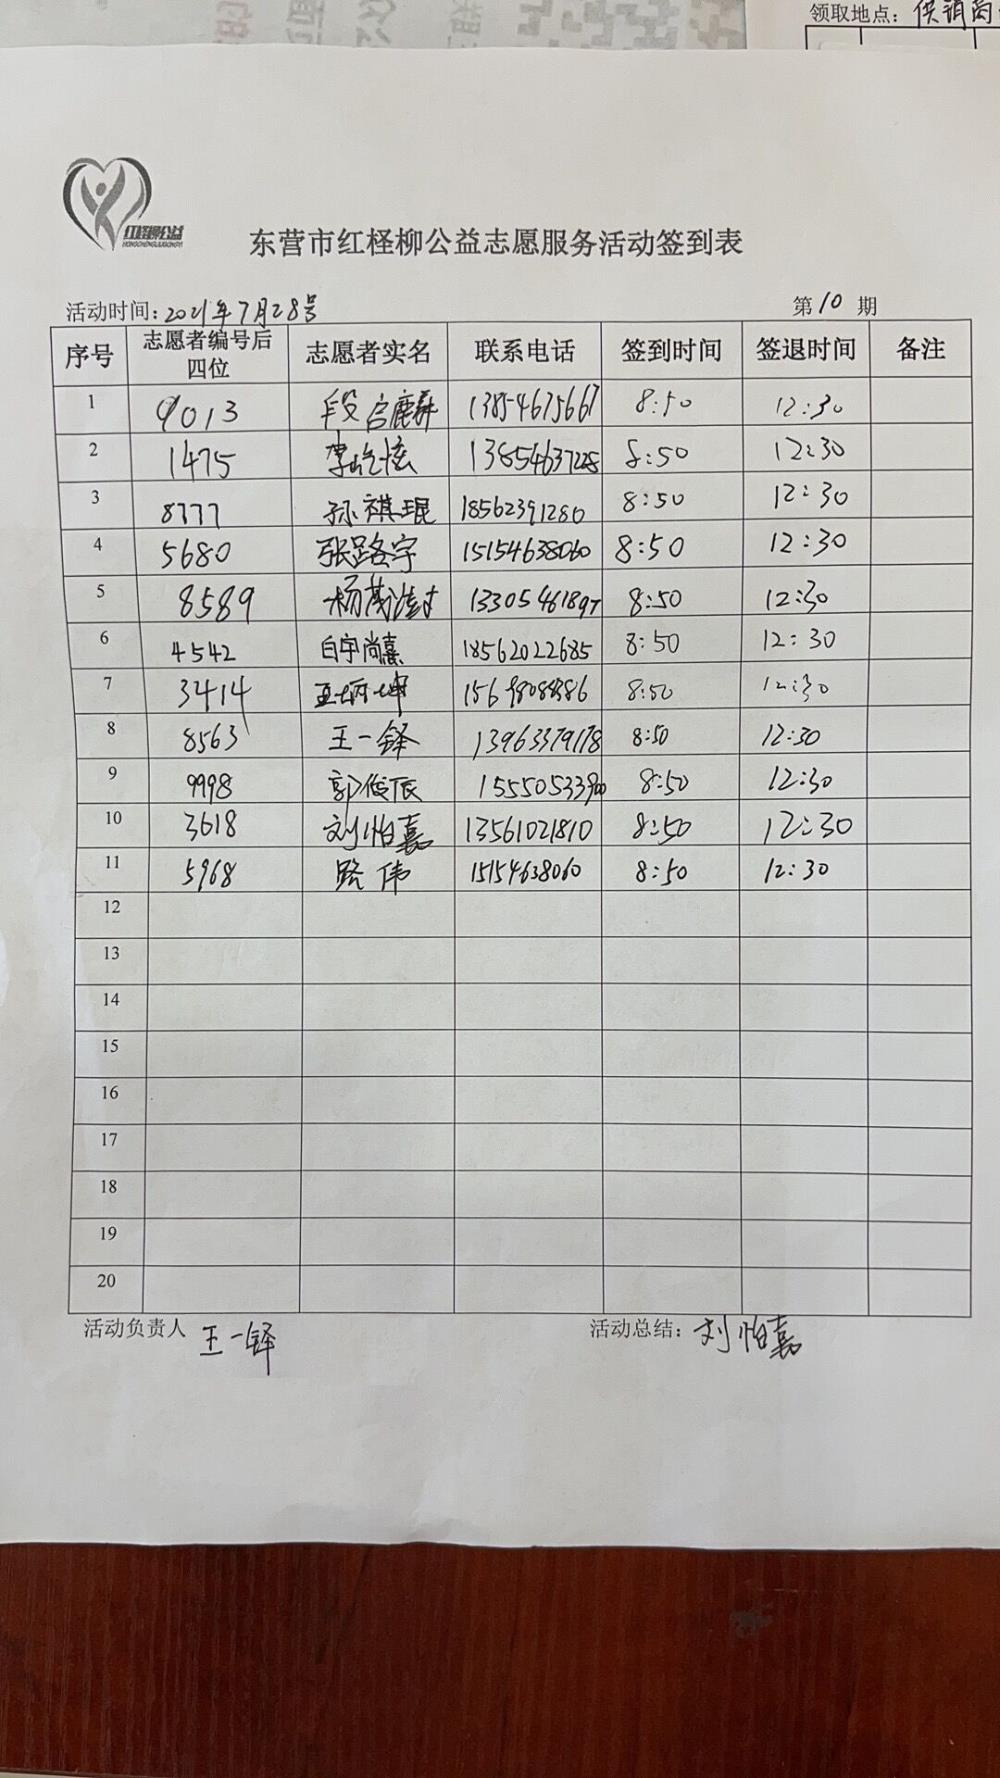 领取地点：供销商
红柽柳公益
HONGCHENGLIUGONGYI
东营市红柽柳公益志愿服务活动签到表
活动时间：2021年7月28号 第10期
序号 志愿者编号后四位 志愿者实名 联系电话 签到时间 签退时间 备注
1 9013 13854675667 8:50 12:30
2 1475 8:50 12:30
3 8777 孙祺琨 18562391280 8:50 12:30
4 5680 张路宇 15154638060 8:50 12:30
5 8589 13305461897 8:50 12:30
6 4542 白宇尚熹 18562022685 8:50 12:30
7 3414 8:50 12:30
8 8563 王一铎 13963379178 8:50 12:30
9 9998 郭俊辰 8:50 12:30
10 3618 刘怡嘉 13561021810 8:50 12:30
11 5968 路伟 15154638060 8:50 12:30
12
13
14
15
16
17
18
19
20
活动负责人 王一铎 活动总结：刘怡嘉